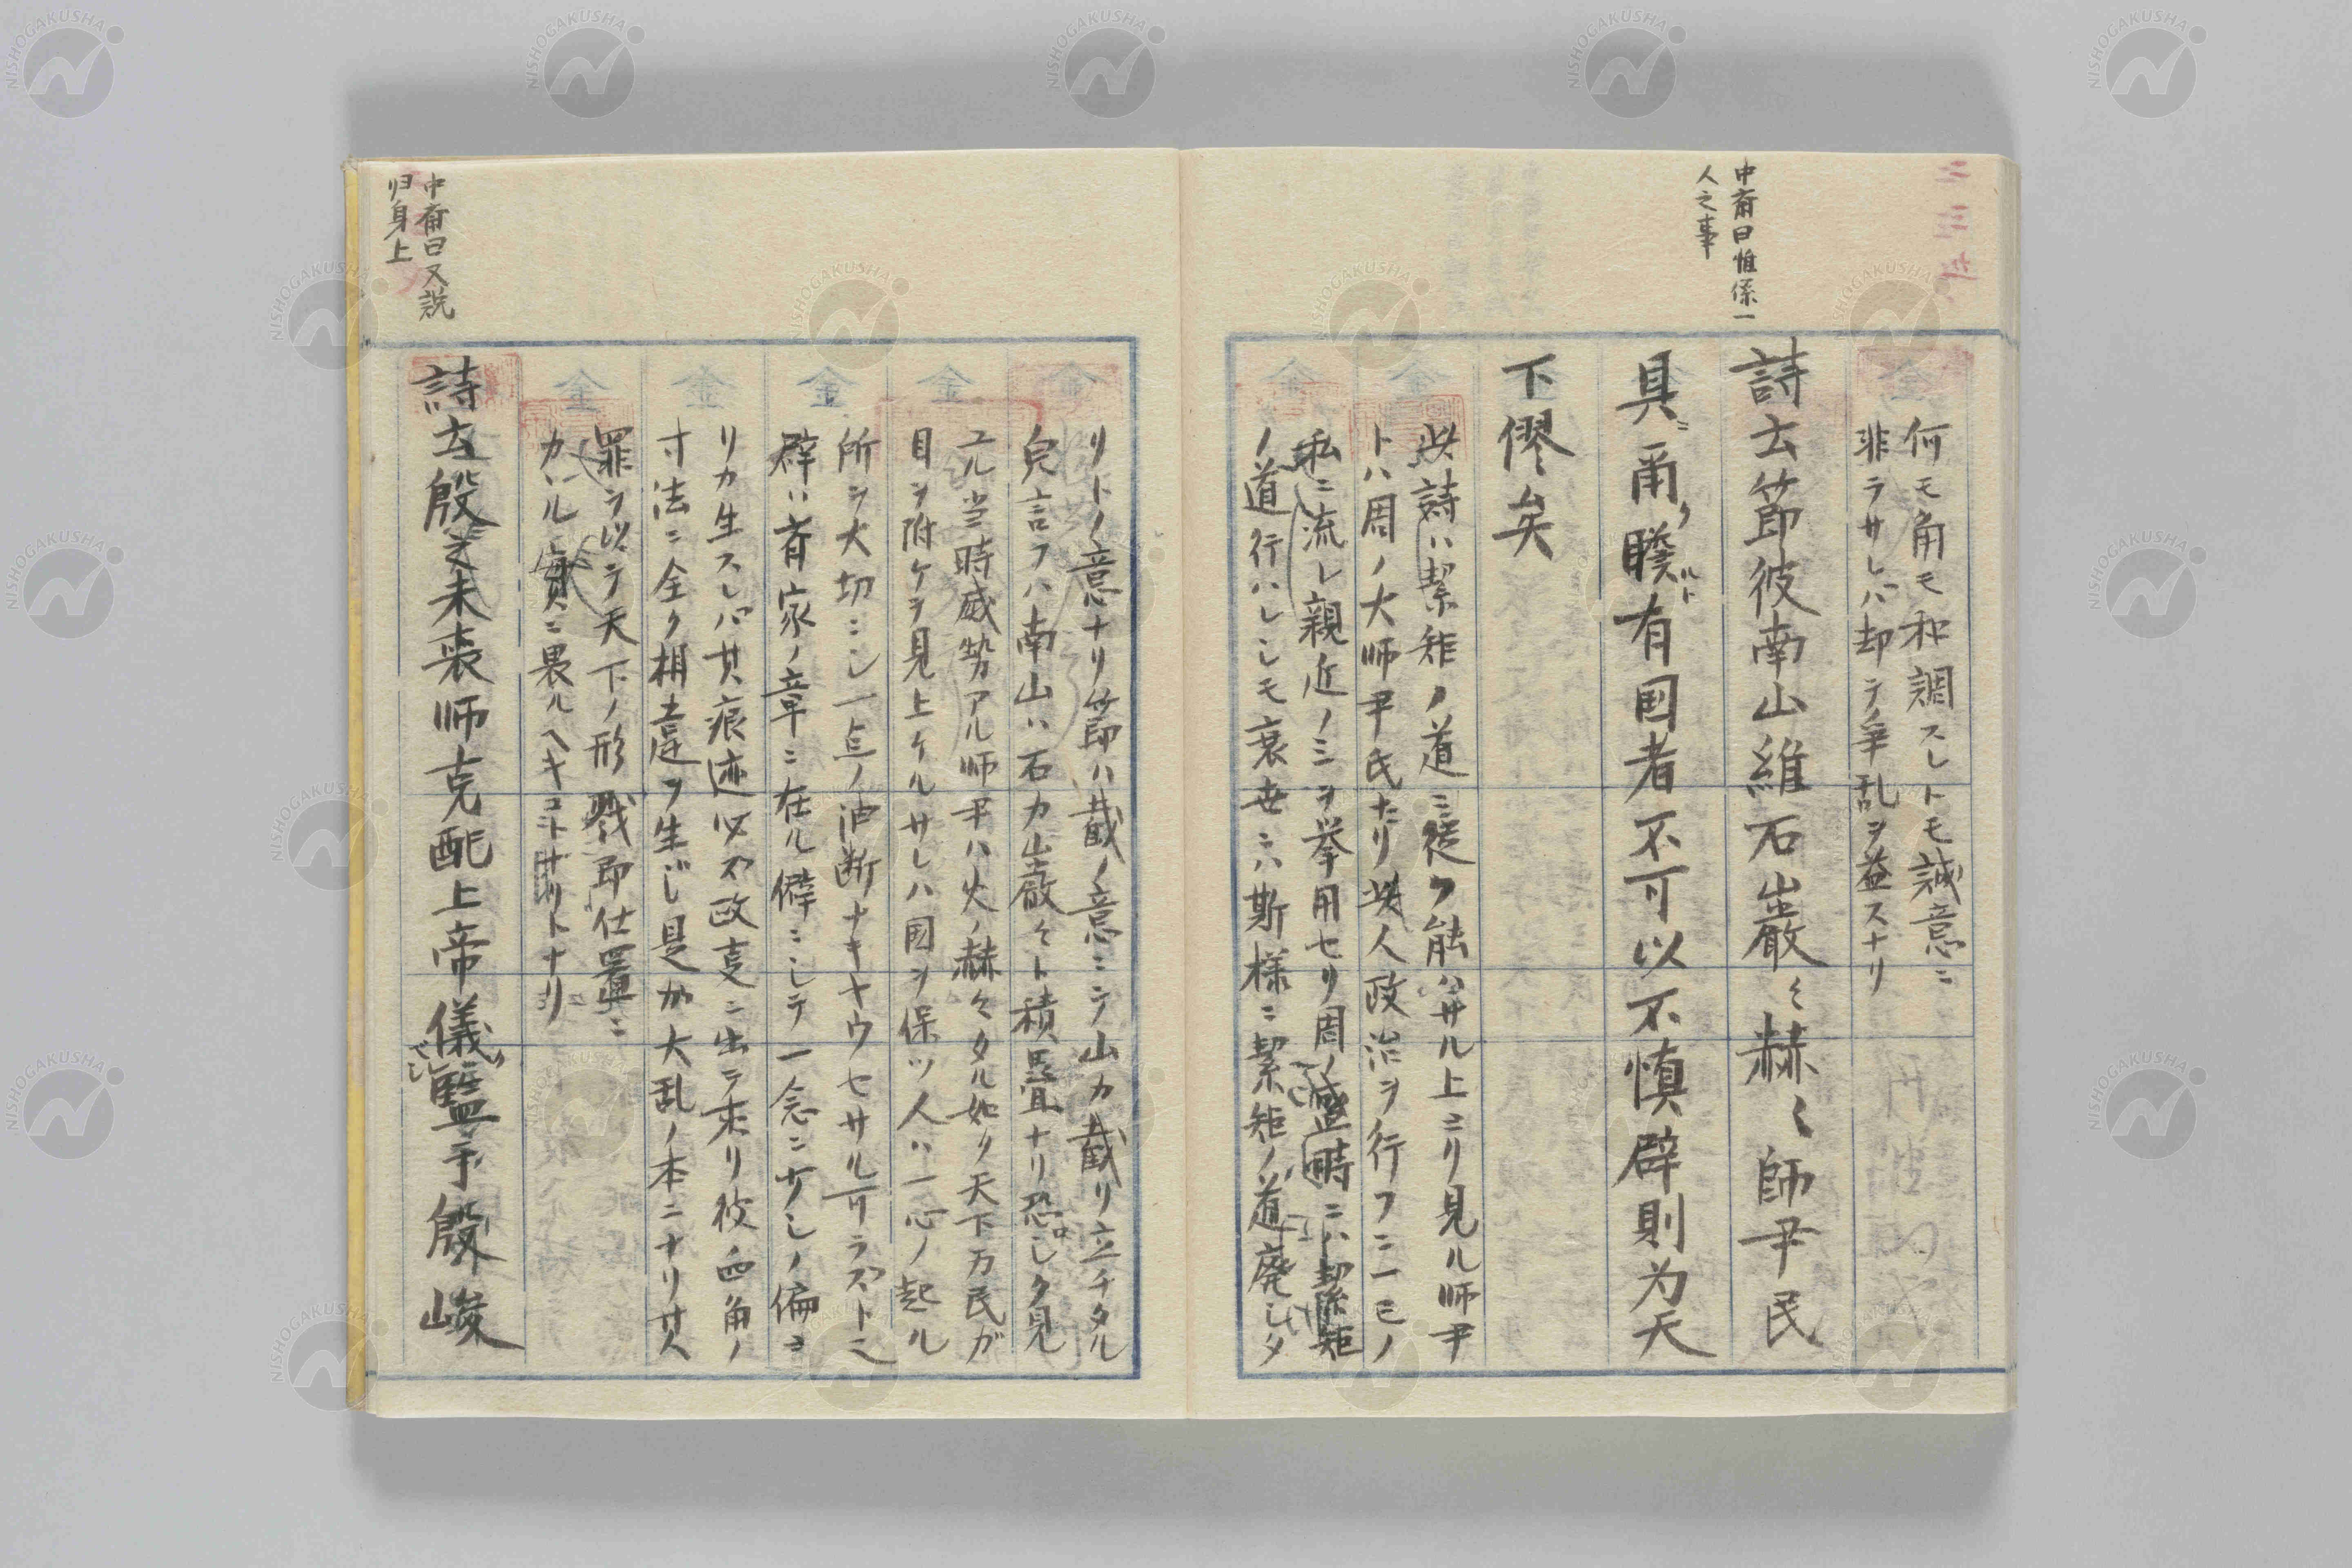 中斎曰惟係一
人之事
何モ角モ和調スレトモ誠意ニ
非ラサレバ却テ争乱ヲ益スナリ
詩云節彼南山維石巌々赫々師尹民
具ニ爾ヲ瞻ルト有国者不可以不慎辟則为天
下僇矣
此詩ハ絜矩ノ道ニ従フ能ハサル上ヨリ見ル師尹
トハ周ノ大師尹氏たり此人政治ヲ行フニ一モノ
私ニ流レ親近ノミヲ挙用セリ周ノ盛時ニハ絜矩
ノ道行ハレシモ衰世ニハ斯様ニ絜矩ノ道廃レタ
リトノ意ナリ節ハ截ノ意ニテ山カ截リ立チタル
皃言フハ南山ハ石カ巌々ト積畳ナリ恐レタ見
ユル当時威勢アル师尹ハ火ノ赫々タル如ク天下万民ガ
目ヲ附ケテ見上ケルサレハ国ヲ保ツ人ハ一心ノ起ル
所ヲ大切ニシ一点ノ油断ナキヤウセサル可ラストニ
辟ハ斉家ノ章ニ在ル僻ニシテ一念ニ少シノ偏ヨ
リカ生スレバ其痕迹必ス政支ニ出テ来リ彼四角ノ
寸法ニ全ク相違ヲ生じ是か大乱ノ本ニナリ其
罪ヲ以テ天下ノ形戮即仕置ニ
カハル實ニ畏ルヘキコトサリトナリ
中斎曰又説
归身上
詩云殷之未喪师克配上帝儀ク監于殷峻